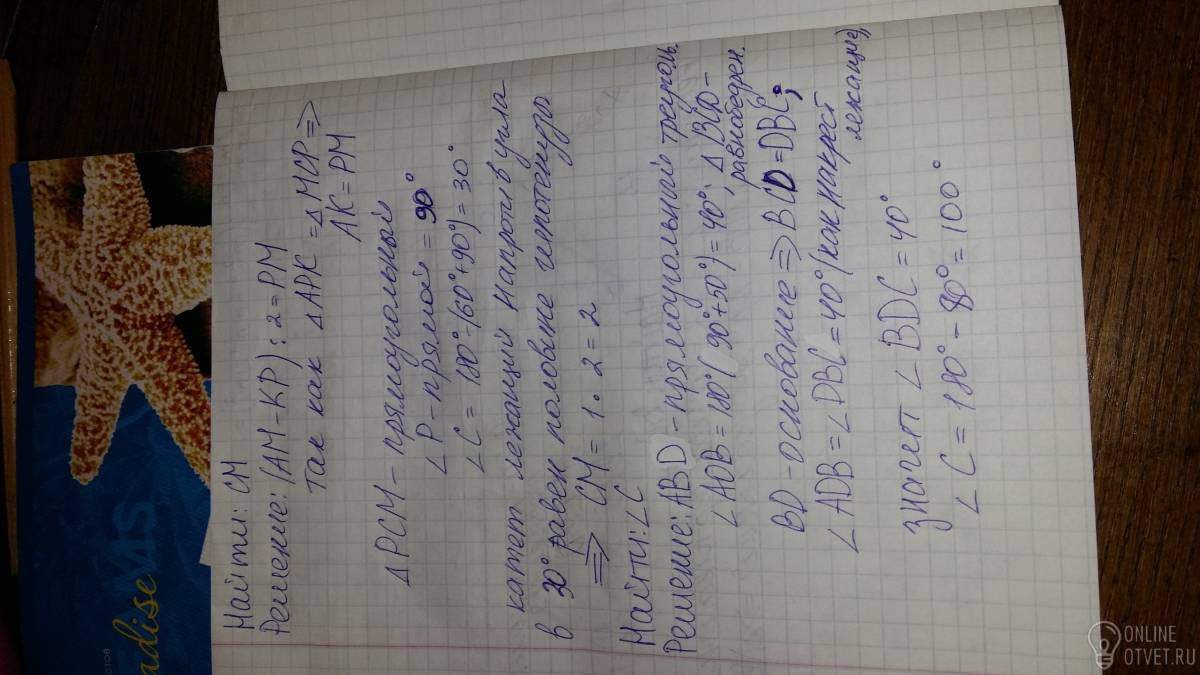 Найти: CM
Решение: (AM-KP) : 2 = PM
так как △APK = △MCP =>
AK = PM
△PCM - прямоугольный
∠P - прямой = 90°
∠C = 180° - (60° + 90°) = 30°
катет лежащий напротив угла
в 30° равен половине гипотенузы
=> CM = 1 · 2 = 2
Найти: ∠C
Решение: ABD - прямоугольный треуголь.
∠AOB = 180° (90° + 50°) = 40°; △BCD -
равнобедрен.
BD - основание => BCD = DBC;
∠ADB = ∠DBC = 40° (как накрест
лежащие)
значит ∠BDC = 40°
∠C = 180° - 80° = 100°
MS
adise
ONLINE
OTVET.RU